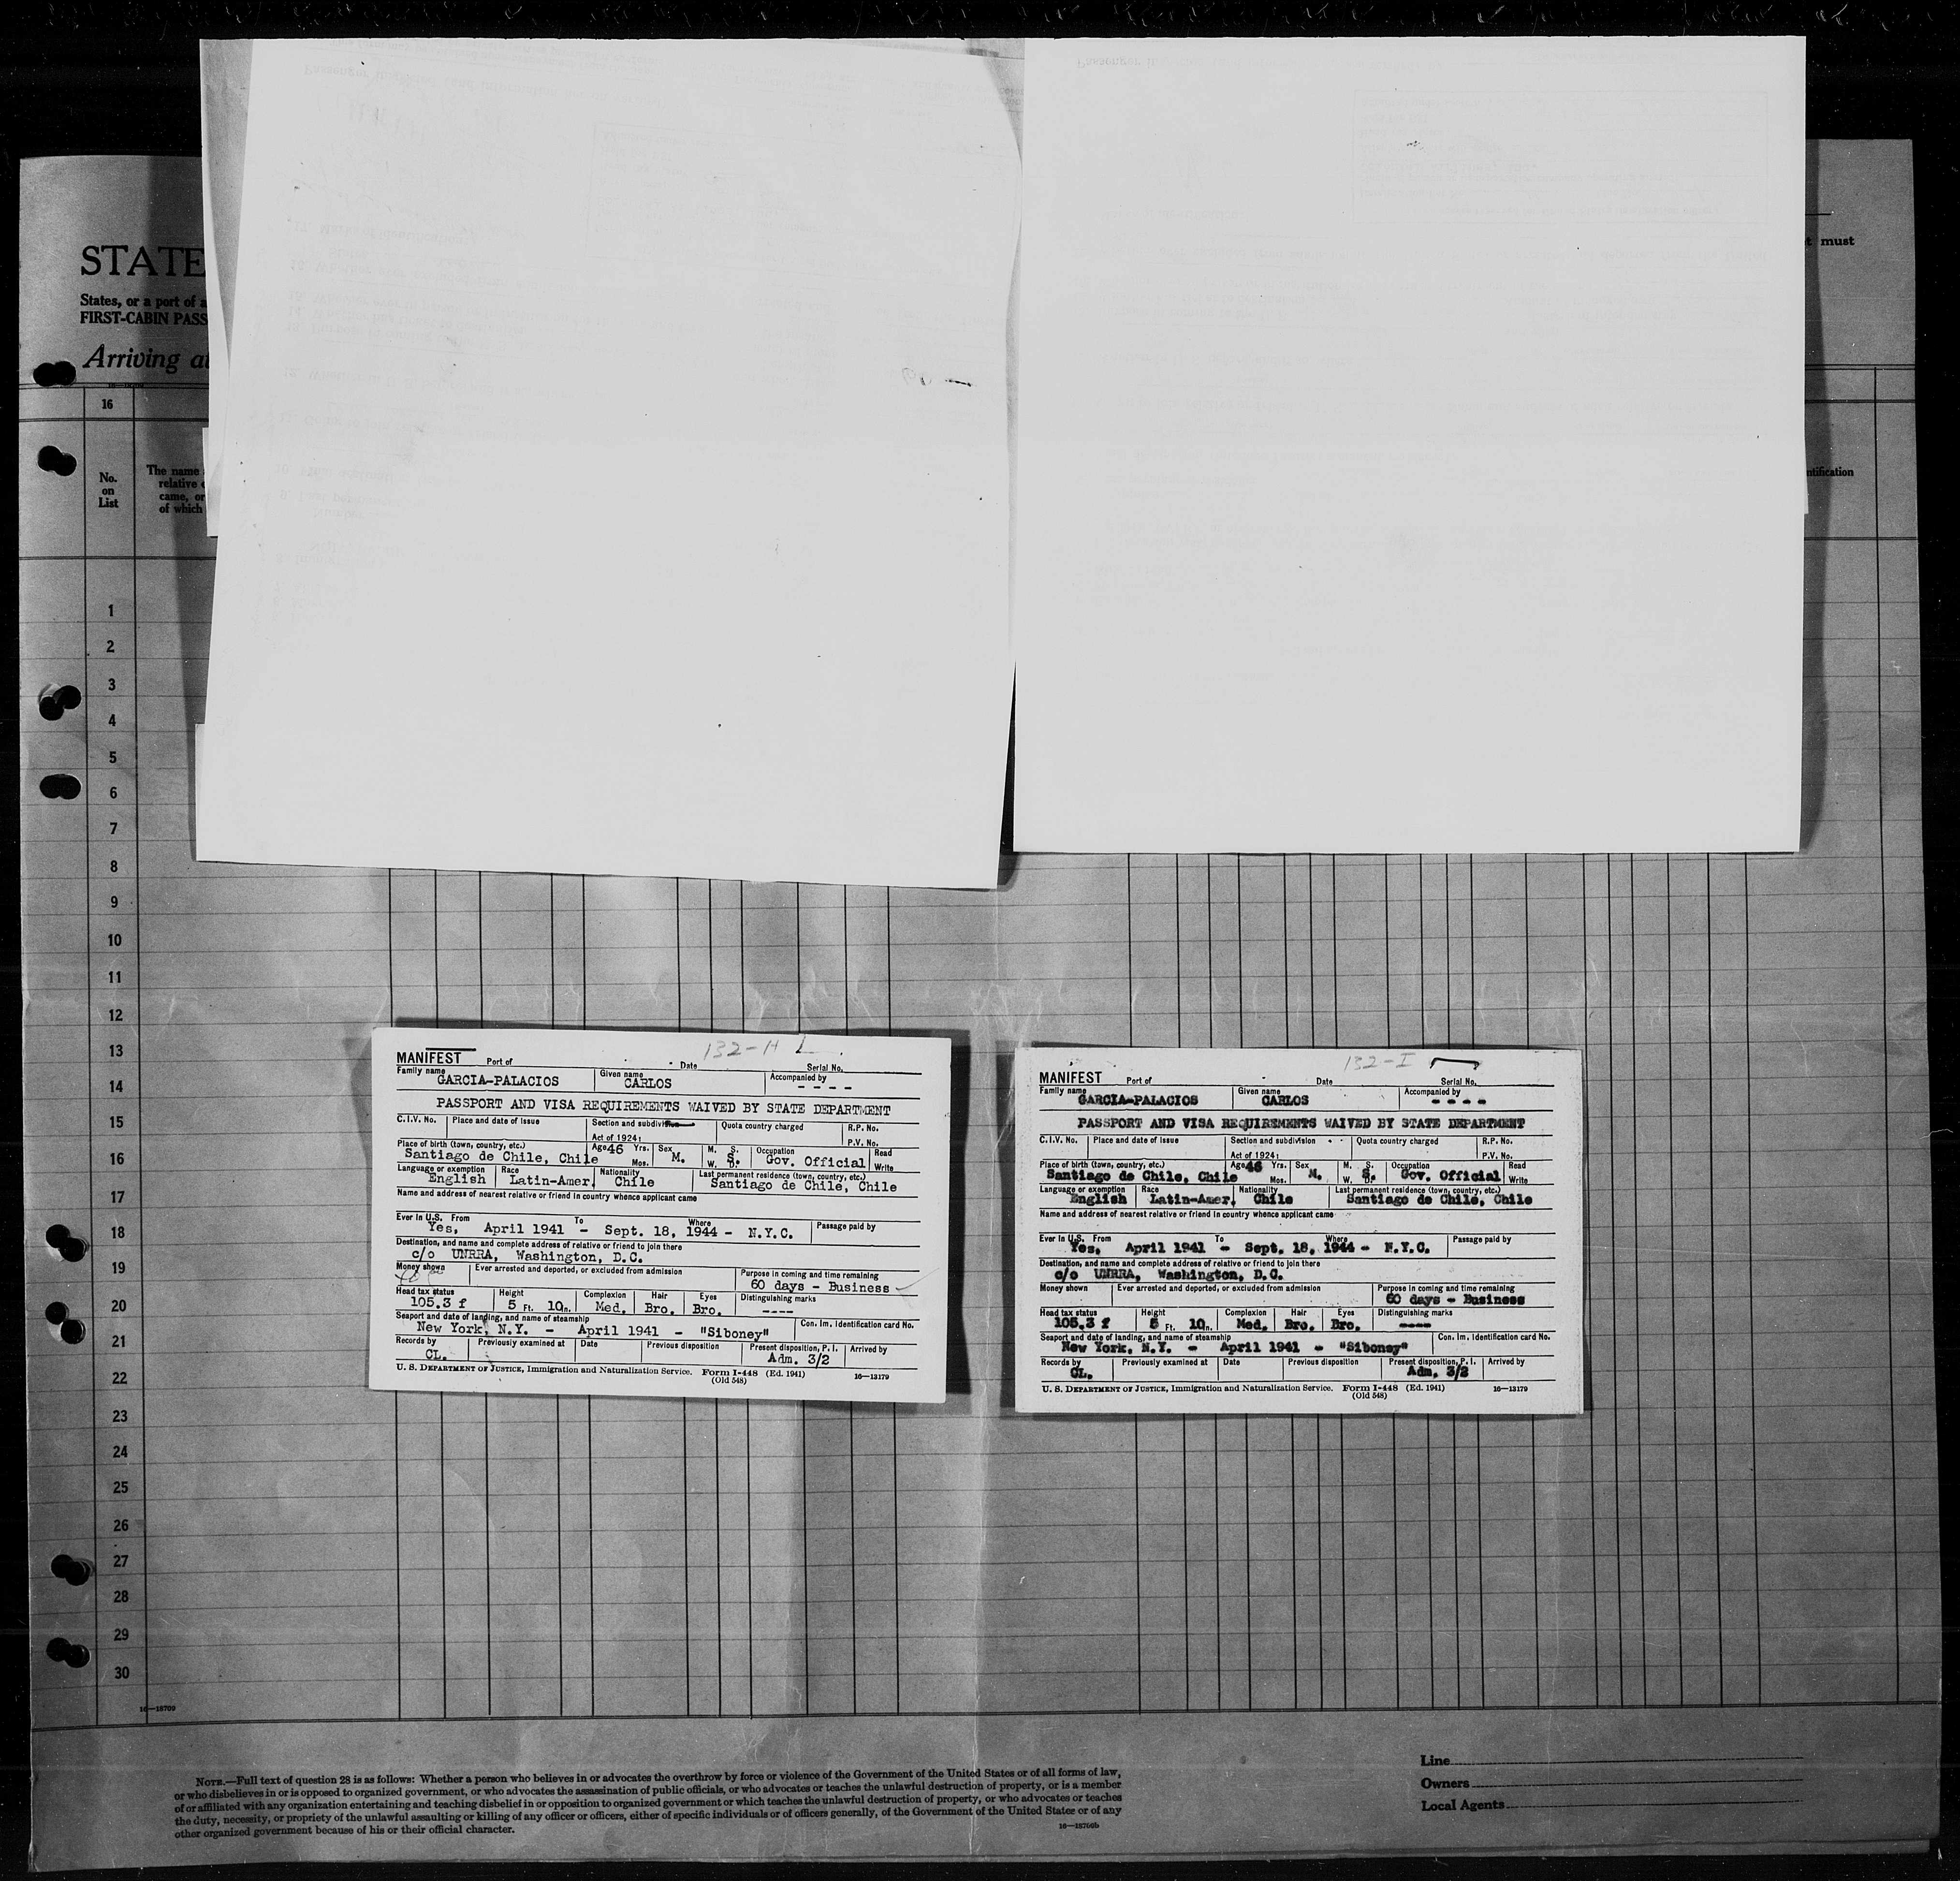 STATE
States, or a port of a
FIRST-CABIN PASS
Arriving at
must
16
No.
on
List
The name
relative
came, or
of which
ntification
1
2
3
4
5
6
7
8
9
10
11
12
13
14
15
16
17
18
19
20
21
22
23
24
25
26
27
28
29
30
132-H
MANIFEST Port of Date Serial No.
Family name Given name Accompanied by
GARCIA-PALACIOS CARLOS - - - -
PASSPORT AND VISA REQUIREMENTS WAIVED BY STATE DEPARTMENT
C.I.V. No. Place and date of issue Section and subdivision Quota country charged R.P. No.
Act of 1924: P.V. No.
Place of birth (town, country, etc.) Age 46 Yrs. Sex M. S. Occupation Read
Santiago de Chile, Chile Mos. M. W. D. Gov. Official Write
Language or exemption Race Nationality Last permanent residence (town, country, etc.)
English Latin-Amer. Chile Santiago de Chile, Chile
Name and address of nearest relative or friend in country whence applicant came
Ever in U.S. From To Where Passage paid by
Yes, April 1941 - Sept. 18, 1944 - N.Y.C.
Destination, and name and complete address of relative or friend to join there
c/o UNRRA, Washington, D.C.
Money shown Ever arrested and deported, or excluded from admission Purpose in coming and time remaining
60 days - Business
Head tax status Height Complexion Hair Eyes Distinguishing marks
105.3 f 5 Ft. 10 In. Med. Bro. Bro. ----
Seaport and date of landing, and name of steamship Con. Im. Identification card No.
New York, N.Y. - April 1941 - "Siboney"
Records by Previously examined at Date Previous disposition Present disposition, P. I. Arrived by
CL. Adm. 3/2
U. S. DEPARTMENT OF JUSTICE, Immigration and Naturalization Service. Form I-448 (Ed. 1941) 16—13179
(Old 548)
132-I
MANIFEST Port of Date Serial No.
Family name Given name Accompanied by
GARCIA-PALACIOS CARLOS - - - -
PASSPORT AND VISA REQUIREMENTS WAIVED BY STATE DEPARTMENT
C.I.V. No. Place and date of issue Section and subdivision Quota country charged R.P. No.
Act of 1924: P.V. No.
Place of birth (town, country, etc.) Age 46 Yrs. Sex M. S. Occupation Read
Santiago de Chile, Chile Mos. M. W. D. Gov. Official Write
Language or exemption Race Nationality Last permanent residence (town, country, etc.)
English Latin-Amer. Chile Santiago de Chile, Chile
Name and address of nearest relative or friend in country whence applicant came
Ever in U.S. From To Where Passage paid by
Yes, April 1941 - Sept. 18, 1944 - N.Y.C.
Destination, and name and complete address of relative or friend to join there
c/o UNRRA, Washington, D.C.
Money shown Ever arrested and deported, or excluded from admission Purpose in coming and time remaining
60 days - Business
Head tax status Height Complexion Hair Eyes Distinguishing marks
105.3 f 5 Ft. 10 In. Med. Bro. Bro. ----
Seaport and date of landing, and name of steamship Con. Im. Identification card No.
New York, N.Y. - April 1941 - "Siboney"
Records by Previously examined at Date Previous disposition Present disposition, P. I. Arrived by
CL. Adm. 3/2
U. S. DEPARTMENT OF JUSTICE, Immigration and Naturalization Service. Form I-448 (Ed. 1941) 16—13179
(Old 548)
16—18709
NOTE.—Full text of question 28 is as follows: Whether a person who believes in or advocates the overthrow by force or violence of the Government of the United States or of all forms of law,
or who disbelieves in or is opposed to organized government, or who advocates the assassination of public officials, or who advocates or teaches the unlawful destruction of property, or is a member
of or affiliated with any organization entertaining and teaching disbelief in or opposition to organized government or which teaches the unlawful destruction of property, or who advocates or teaches
the duty, necessity, or propriety of the unlawful assaulting or killing of any officer or officers, either of specific individuals or of officers generally, of the Government of the United States or of any
other organized government because of his or their official character.
16—18709b
Line
Owners
Local Agents